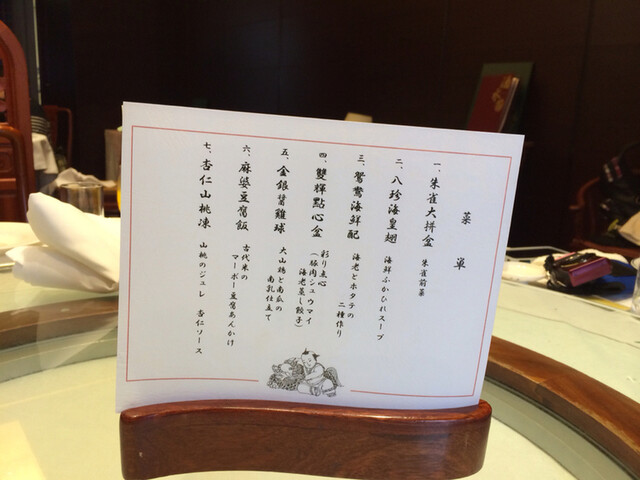 菜単
一、朱雀大拼盆
朱雀前菜
二、八珍海皇翅
海鮮ふかひれスープ
三、鴛鴦海鮮配
海老とホタテの
二種作り
四、雙輝點心盒
彩り点心
（豚肉シュウマイ
海老蒸し餃子）
五、金銀醤雞球
大山鶏と南瓜の
南乳仕立て
六、麻婆豆腐飯
古代米の
マーボー豆腐あんかけ
七、杏仁山桃凍
山桃のジュレ 杏仁ソース